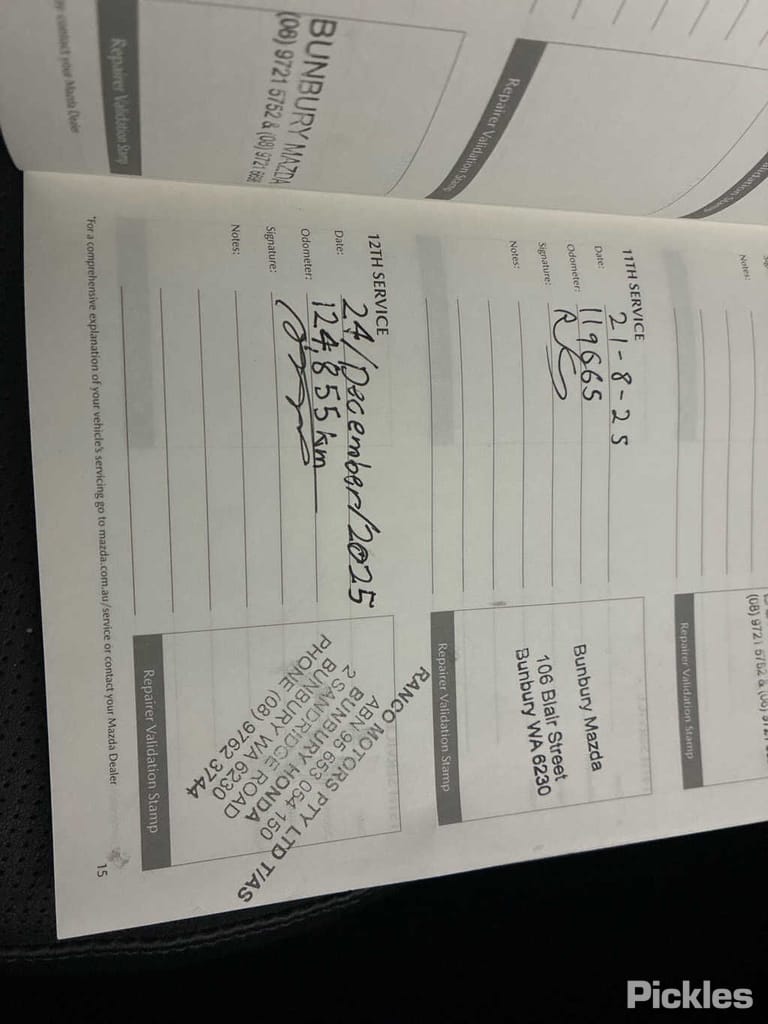 by contact your Mazda Dealer
Repairer Validation Stamp
BUNBURY MAZDA
(08) 9721 5752 &
Repairer Validation Stamp
Notes:
(08) 9721 5752 &
Repairer Validation Stamp
11TH SERVICE
Date: 21-8-25
Odometer: 119665
Signature:
Notes:
Bunbury Mazda
106 Blair Street
Bunbury WA 6230
Repairer Validation Stamp
12TH SERVICE
Date: 24/December/2025
Odometer: 124,855km
Signature:
Notes:
RANCO MOTORS PTY LTD T/AS
ABN 95 653 054 150
BUNBURY HONDA
2 SANDRIDGE ROAD
BUNBURY WA 6230
PHONE (08) 9762 3744
Repairer Validation Stamp
*For a comprehensive explanation of your vehicle's servicing go to mazda.com.au/service or contact your Mazda Dealer
15
Pickles